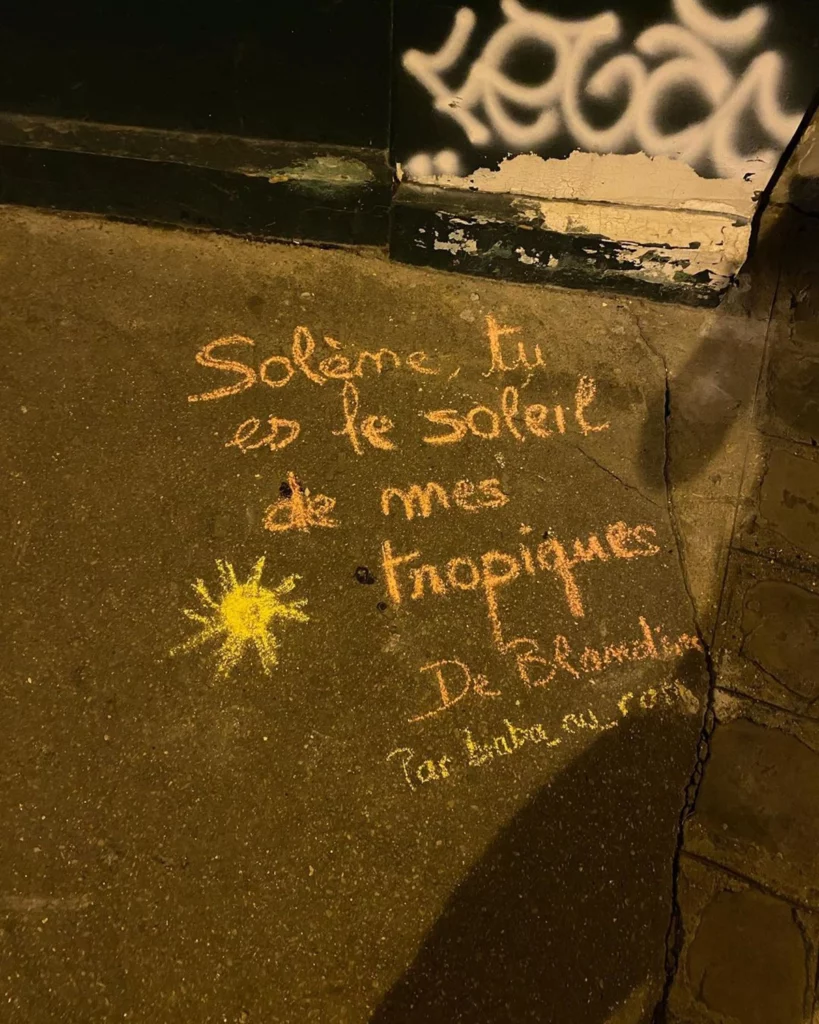 Solème, tu
es le soleil
de mes
tropiques
De Blandin
Par baba_au_rom